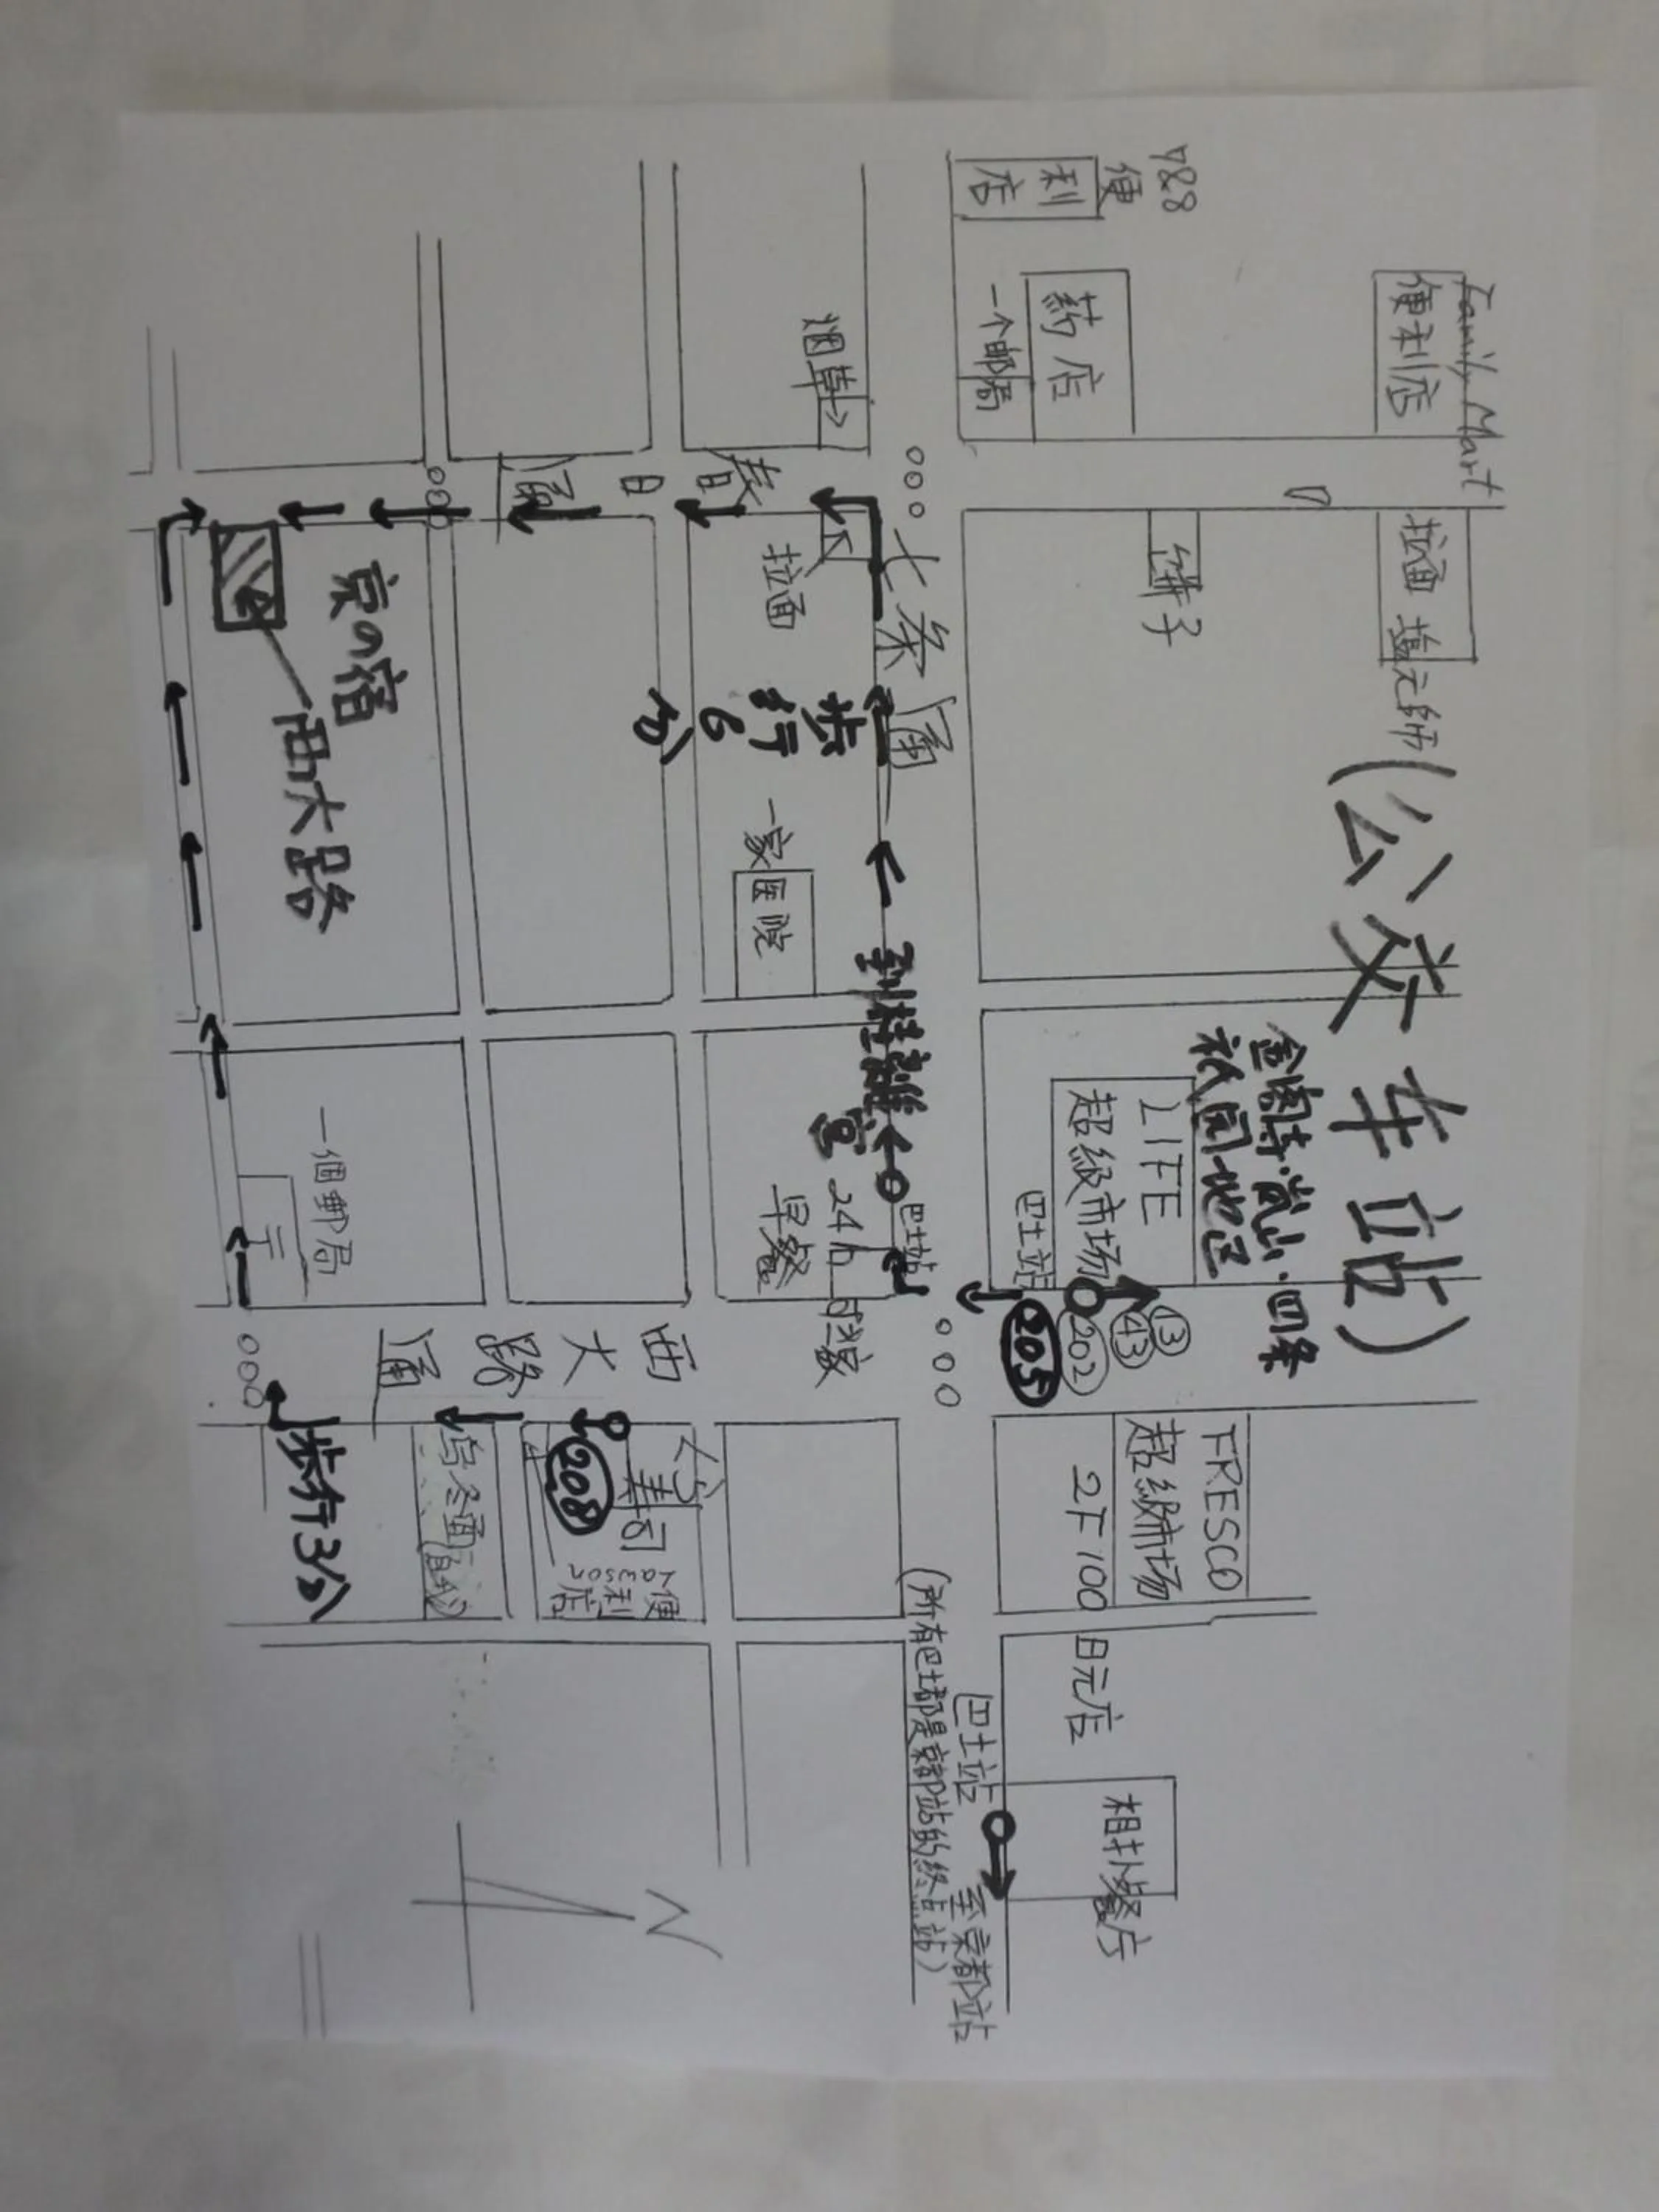 (公交车站)
Family Mart
便利店
拉面 塩元帥
金阁寺·嵐山·四条
祇园地区
788
便利店
药店
一个邮局
饼子
LIFE
超级市场
巴士站
13
43
202
205
FRESCO
超級市场
2F 100日元店
相扑餐厅
七条通
到桂離宮
巴士站
巴士站
至京都站
(所有巴士都是京都站的终点站)
烟草
拉面
步行6分
一家医院
24h
早餐
春日通
西大路通
寿司
208
Lawson
便利店
乌冬面
京の宿
西大路
一個郵局
〒
步行3分
N